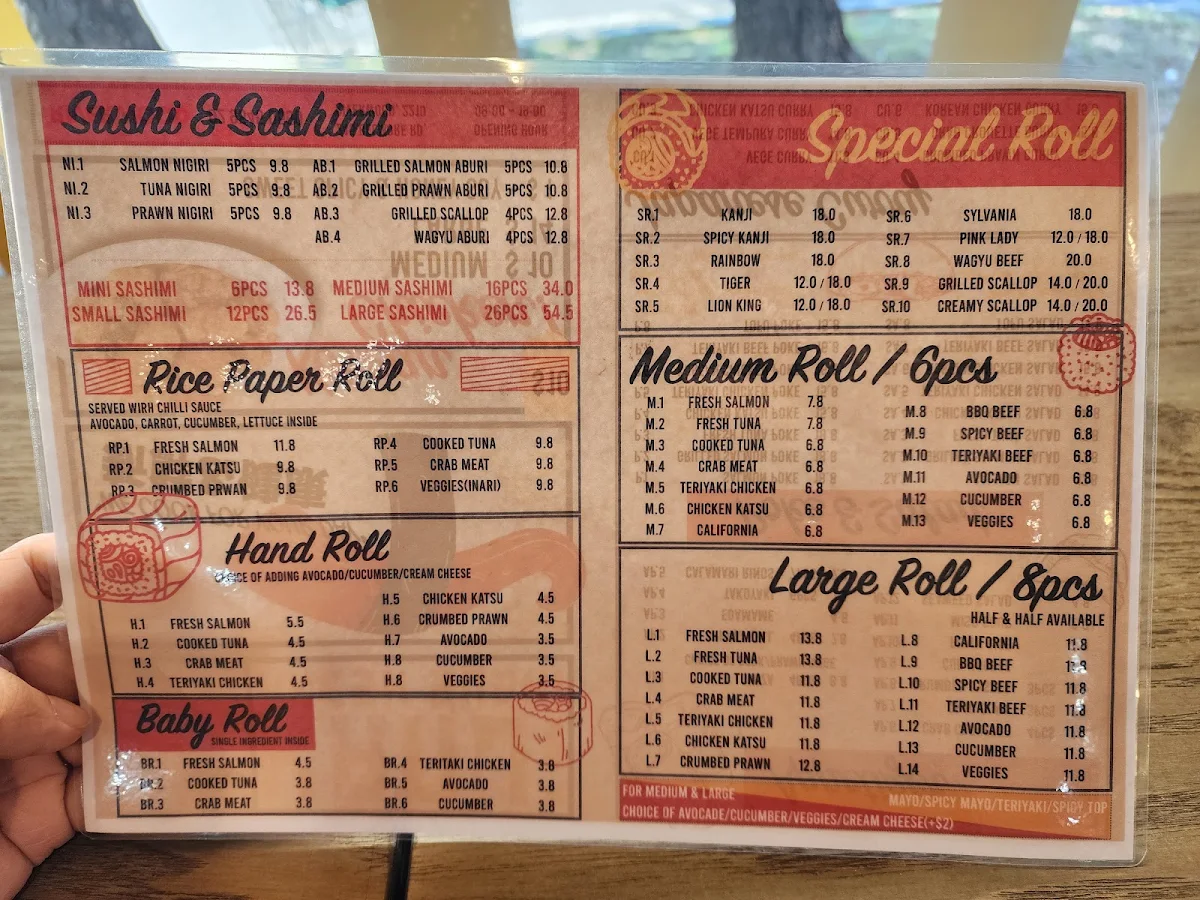 Sushi & Sashimi
NI.1 SALMON NIGIRI 5PCS 9.8 AB.1 GRILLED SALMON ABURI 5PCS 10.8
NI.2 TUNA NIGIRI 5PCS 9.8 AB.2 GRILLED PRAWN ABURI 5PCS 10.8
NI.3 PRAWN NIGIRI 5PCS 9.8 AB.3 GRILLED SCALLOP 4PCS 12.8
AB.4 WAGYU ABURI 4PCS 12.8
MINI SASHIMI 6PCS 13.8 MEDIUM SASHIMI 16PCS 34.0
SMALL SASHIMI 12PCS 26.5 LARGE SASHIMI 26PCS 54.5
Rice Paper Roll
SERVED WIRH CHILLI SAUCE
AVOCADO, CARROT, CUCUMBER, LETTUCE INSIDE
RP.1 FRESH SALMON 11.8 RP.4 COOKED TUNA 9.8
RP.2 CHICKEN KATSU 9.8 RP.5 CRAB MEAT 9.8
RP.3 CRUMBED PRWAN 9.8 RP.6 VEGGIES(INARI) 9.8
Hand Roll
CHOICE OF ADDING AVOCADO/CUCUMBER/CREAM CHEESE
H.1 FRESH SALMON 5.5
H.2 COOKED TUNA 4.5
H.3 CRAB MEAT 4.5
H.4 TERIYAKI CHICKEN 4.5
H.5 CHICKEN KATSU 4.5
H.6 CRUMBED PRAWN 4.5
H.7 AVOCADO 3.5
H.8 CUCUMBER 3.5
H.8 VEGGIES 3.5
Baby Roll
SINGLE INGREDIENT INSIDE
BR.1 FRESH SALMON 4.5 BR.4 TERITAKI CHICKEN 3.8
BR.2 COOKED TUNA 3.8 BR.5 AVOCADO 3.8
BR.3 CRAB MEAT 3.8 BR.6 CUCUMBER 3.8
Special Roll
SR.1 KANJI 18.0 SR.6 SYLVANIA 18.0
SR.2 SPICY KANJI 18.0 SR.7 PINK LADY 12.0 / 18.0
SR.3 RAINBOW 18.0 SR.8 WAGYU BEEF 20.0
SR.4 TIGER 12.0 / 18.0 SR.9 GRILLED SCALLOP 14.0 / 20.0
SR.5 LION KING 12.0 / 18.0 SR.10 CREAMY SCALLOP 14.0 / 20.0
Medium Roll / 6pcs
M.1 FRESH SALMON 7.8
M.2 FRESH TUNA 7.8
M.3 COOKED TUNA 6.8
M.4 CRAB MEAT 6.8
M.5 TERIYAKI CHICKEN 6.8
M.6 CHICKEN KATSU 6.8
M.7 CALIFORNIA 6.8
M.8 BBQ BEEF 6.8
M.9 SPICY BEEF 6.8
M.10 TERIYAKI BEEF 6.8
M.11 AVOCADO 6.8
M.12 CUCUMBER 6.8
M.13 VEGGIES 6.8
Large Roll / 8pcs
HALF & HALF AVAILABLE
L.1 FRESH SALMON 13.8
L.2 FRESH TUNA 13.8
L.3 COOKED TUNA 11.8
L.4 CRAB MEAT 11.8
L.5 TERIYAKI CHICKEN 11.8
L.6 CHICKEN KATSU 11.8
L.7 CRUMBED PRAWN 12.8
L.8 CALIFORNIA 11.8
L.9 BBQ BEEF 11.8
L.10 SPICY BEEF 11.8
L.11 TERIYAKI BEEF 11.8
L.12 AVOCADO 11.8
L.13 CUCUMBER 11.8
L.14 VEGGIES 11.8
FOR MEDIUM & LARGE
MAYO/SPICY MAYO/TERIYAKI/SPICY TOP
CHOICE OF AVOCADE/CUCUMBER/VEGGIES/CREAM CHEESE(+$2)